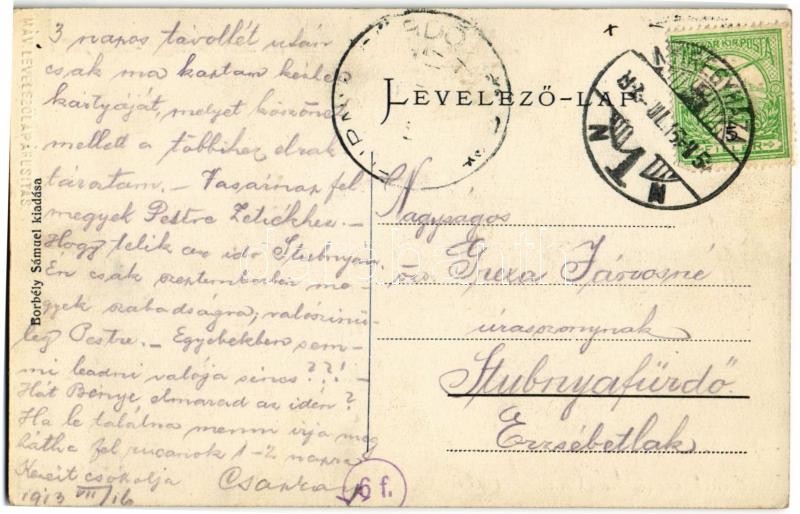 3 napos távollét után
csak ma kaptam kedves
kártyáját, melyet köszönet
mellett a többihez elrak
táratam. – Vasárnap fel
megyek Pestre Zetiékhez. –
Hogy telik az idő Stubnyán.
Én csak szeptemberben me
gyek szabadságra; valószinü-
leg Pestre. – Egyebekben sem-
mi leadni valója sincs??! –
Hát Bénye elmarad az idén?
Ha le találna menni irja meg
hátha fel rucanok 1–2 napra
Kezeit csókolja
1913 VII/16
MÁV. LEVELEZŐLAPÁRUSITÁS
Borbély Sámuel kiadása
LEVELEZŐ–LAP
Nagyságos
özv. Geza Járosné
úrasszonynak
Stubnyafürdő.
Erzsébetlak.
6 f.